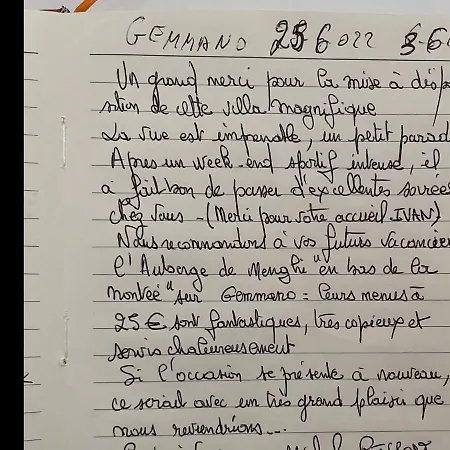 GEMMANO 25 6 022 3-6
Un grand merci pour la mise à dispo
sition de cette villa magnifique
La vue est imprenable, un petit parad
Apres un week-end sportif intense, il
a fait bon de passer d'excellentes soirées
chez Vous - (Merci pour votre accueil IVAN)
Nous recommandons à vos futurs vacancier
l'Auberge de Menghi "en bas de la
montée" sur Gemmano = leurs menus à
25 € sont fantastiques, très copieux et
servis chaleureusement
Si l'occasion se présente à nouveau,
ce serait avec un très grand plaisir que
nous reviendrions...